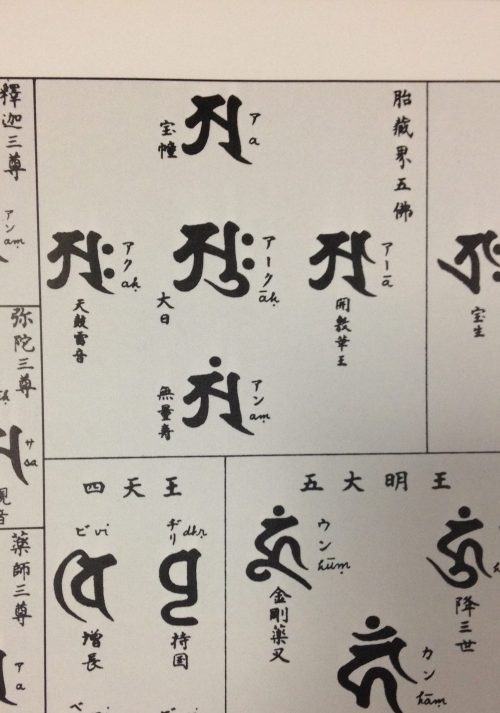 胎藏界五佛
𑖀
ア
a
宝幢
𑖁
アー
ā
開敷華王
𑖁𑖾
アーク
āḥ
大日
𑖀𑖾
アク
aḥ
天鼓雷音
𑖀𑖽
アン
aṃ
無量寿
宝生
釋迦三尊
アン
aṃ
弥陀三尊
サ
sa
観音
薬師三尊
ア
a
五大明王
降三世
ウン
hūṃ
金剛薬叉
カン
hāṃ
四天王
ヂリ
dhṛ
持国
ビ
vi
増長
ベ